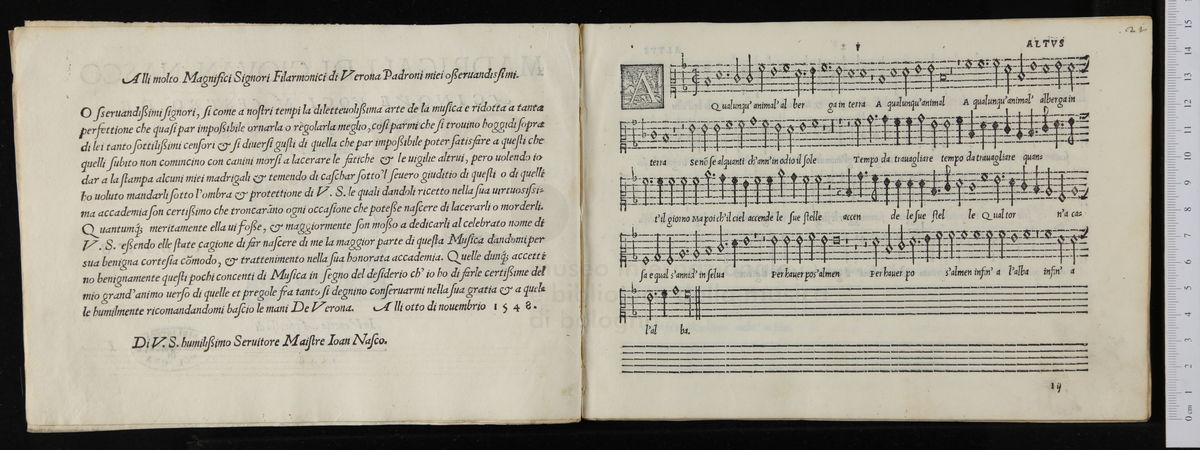 Alli molto Magnifici Signori Filarmonici di Verona Padroni miei osseruandissimi.
Osseruandissimi signori, si come a nostri tempi la diletteuolissima arte de la musica e ridotta a tanta
perfettione che quasi par impossibile ornarla o regolarla meglio, cosi parmi che si trouino hoggidi sopra
di lei tanto sottilissimi censori & si diuersi gusti di quella che par impossibile poter satisfare a questi che
quelli subito non comincino con canini morsi a lacerare le fatiche & le uigilie altrui, pero uolendo io
dar a la stampa alcuni miei madrigali & temendo di caschar sotto'l seuero giuditio di questi o di quelli
ho uoluto mandarli sotto l'ombra & protettione di V. S. le quali dandoli ricetto nella sua uirtuosissi-
ma accademia son certissimo che troncarāno ogni occasione che potesse nascere di lacerarli o morderli.
Quantunq; meritamente ella ui fosse, & maggiormente son mosso a dedicarli al celebrato nome di
V. S. essendo elle state cagione di far nascere di me la maggior parte di questa Musica dandomi per
sua benigna cortesia cōmodo, & trattenimento nella sua honorata accademia. Quelle dunq; accetti
no benignamente questi pochi concenti di Musica in segno del desiderio ch' io ho di farle certissime del
mio grand'animo uerso di quelle et pregole fra tanto si degnino conseruarmi nella sua gratia & a quela
le humilmente ricomandandomi bascio le mani De Verona. Alli otto di nouembrio 1548.
Di V. S. humilissimo Seruitore Maistre Ioan Nasco.
21
ALTVS
A Qualunqu' animal' al ber ga in terra A qualunqu'animal A qualunqu'animal' alberga in
terra Se nō se alquanti ch'ann'in odio il sole Tempo da trauagliare tempo da trauagliare quan=
t'il giorno Ma poi ch'il ciel accende le sue stelle accen de le sue stel le Qual tor n'a ca=
sa e qual s'annid' in selua Per hauer pos'almen Per hauer po s'almen infin' a l'alba infin' a
l'al ba.